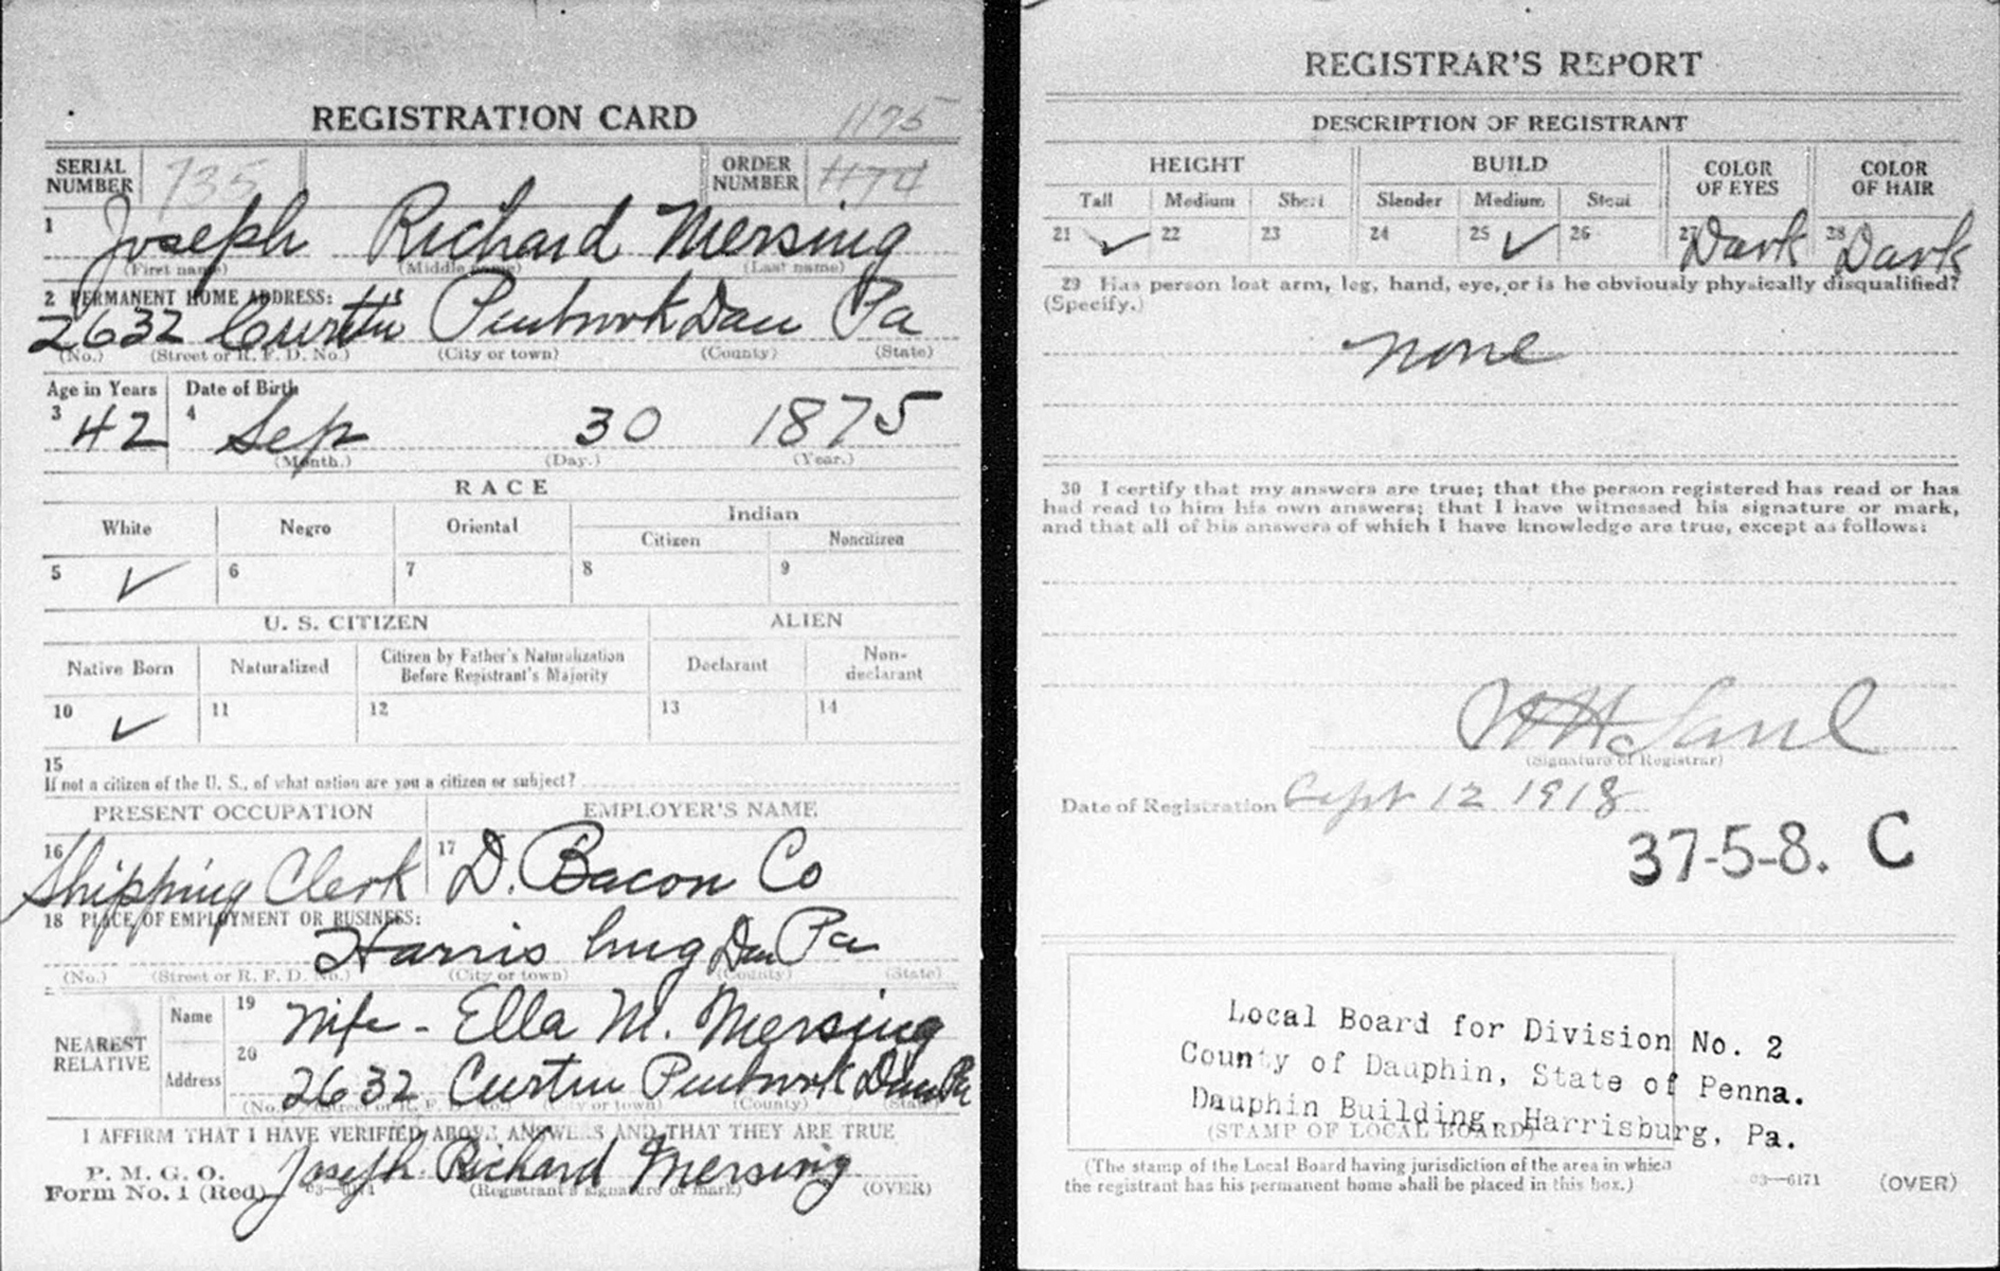 REGISTRATION CARD 1175
SERIAL NUMBER 735 ORDER NUMBER 1174
1 Joseph Richard Mersing
(First name) (Middle name) (Last name)
2 PERMANENT HOME ADDRESS:
2632 Curtin Penbrook Dau Pa
(No.) (Street or R. F. D. No.) (City or town) (County) (State)
Age in Years Date of Birth
3 42 4 Sep 30 1875
(Month.) (Day.) (Year.)
RACE
White Negro Oriental Indian
Citizen Noncitizen
5 ✓ 6 7 8 9
U. S. CITIZEN ALIEN
Native Born Naturalized Citizen by Father's Naturalization Before Registrant's Majority Declarant Non-declarant
10 ✓ 11 12 13 14
15
If not a citizen of the U. S., of what nation are you a citizen or subject?
PRESENT OCCUPATION EMPLOYER'S NAME
16 Shipping Clerk 17 D. Bacon Co
18 PLACE OF EMPLOYMENT OR BUSINESS:
Harris burg Dau Pa
(No.) (Street or R. F. D. No.) (City or town) (County) (State)
NEAREST RELATIVE
Name 19 Wife - Ella M. Mersing
Address 20 2632 Curtin Penbrook Dau Pa
(No.) (Street or R. F. D. No.) (City or town) (County) (State)
I AFFIRM THAT I HAVE VERIFIED ABOVE ANSWERS AND THAT THEY ARE TRUE
P. M. G. O.
Form No. 1 (Red) 03—6171 Joseph Richard Mersing
(Registrant's signature or mark) (OVER)
REGISTRAR'S REPORT
DESCRIPTION OF REGISTRANT
HEIGHT BUILD COLOR OF EYES COLOR OF HAIR
Tall Medium Short Slender Medium Stout
21 ✓ 22 23 24 25 ✓ 26 27 Dark 28 Dark
29 Has person lost arm, leg, hand, eye, or is he obviously physically disqualified?
(Specify.)
none
30 I certify that my answers are true; that the person registered has read or has
had read to him his own answers; that I have witnessed his signature or mark,
and that all of his answers of which I have knowledge are true, except as follows:
WH Saul
(Signature of Registrar)
Date of Registration Sept 12 1918
37-5-8. C
Local Board for Division No. 2
County of Dauphin, State of Penna.
Dauphin Building, Harrisburg, Pa.
(STAMP OF LOCAL BOARD)
(The stamp of the Local Board having jurisdiction of the area in which
the registrant has his permanent home shall be placed in this box.)
03—6171 (OVER)